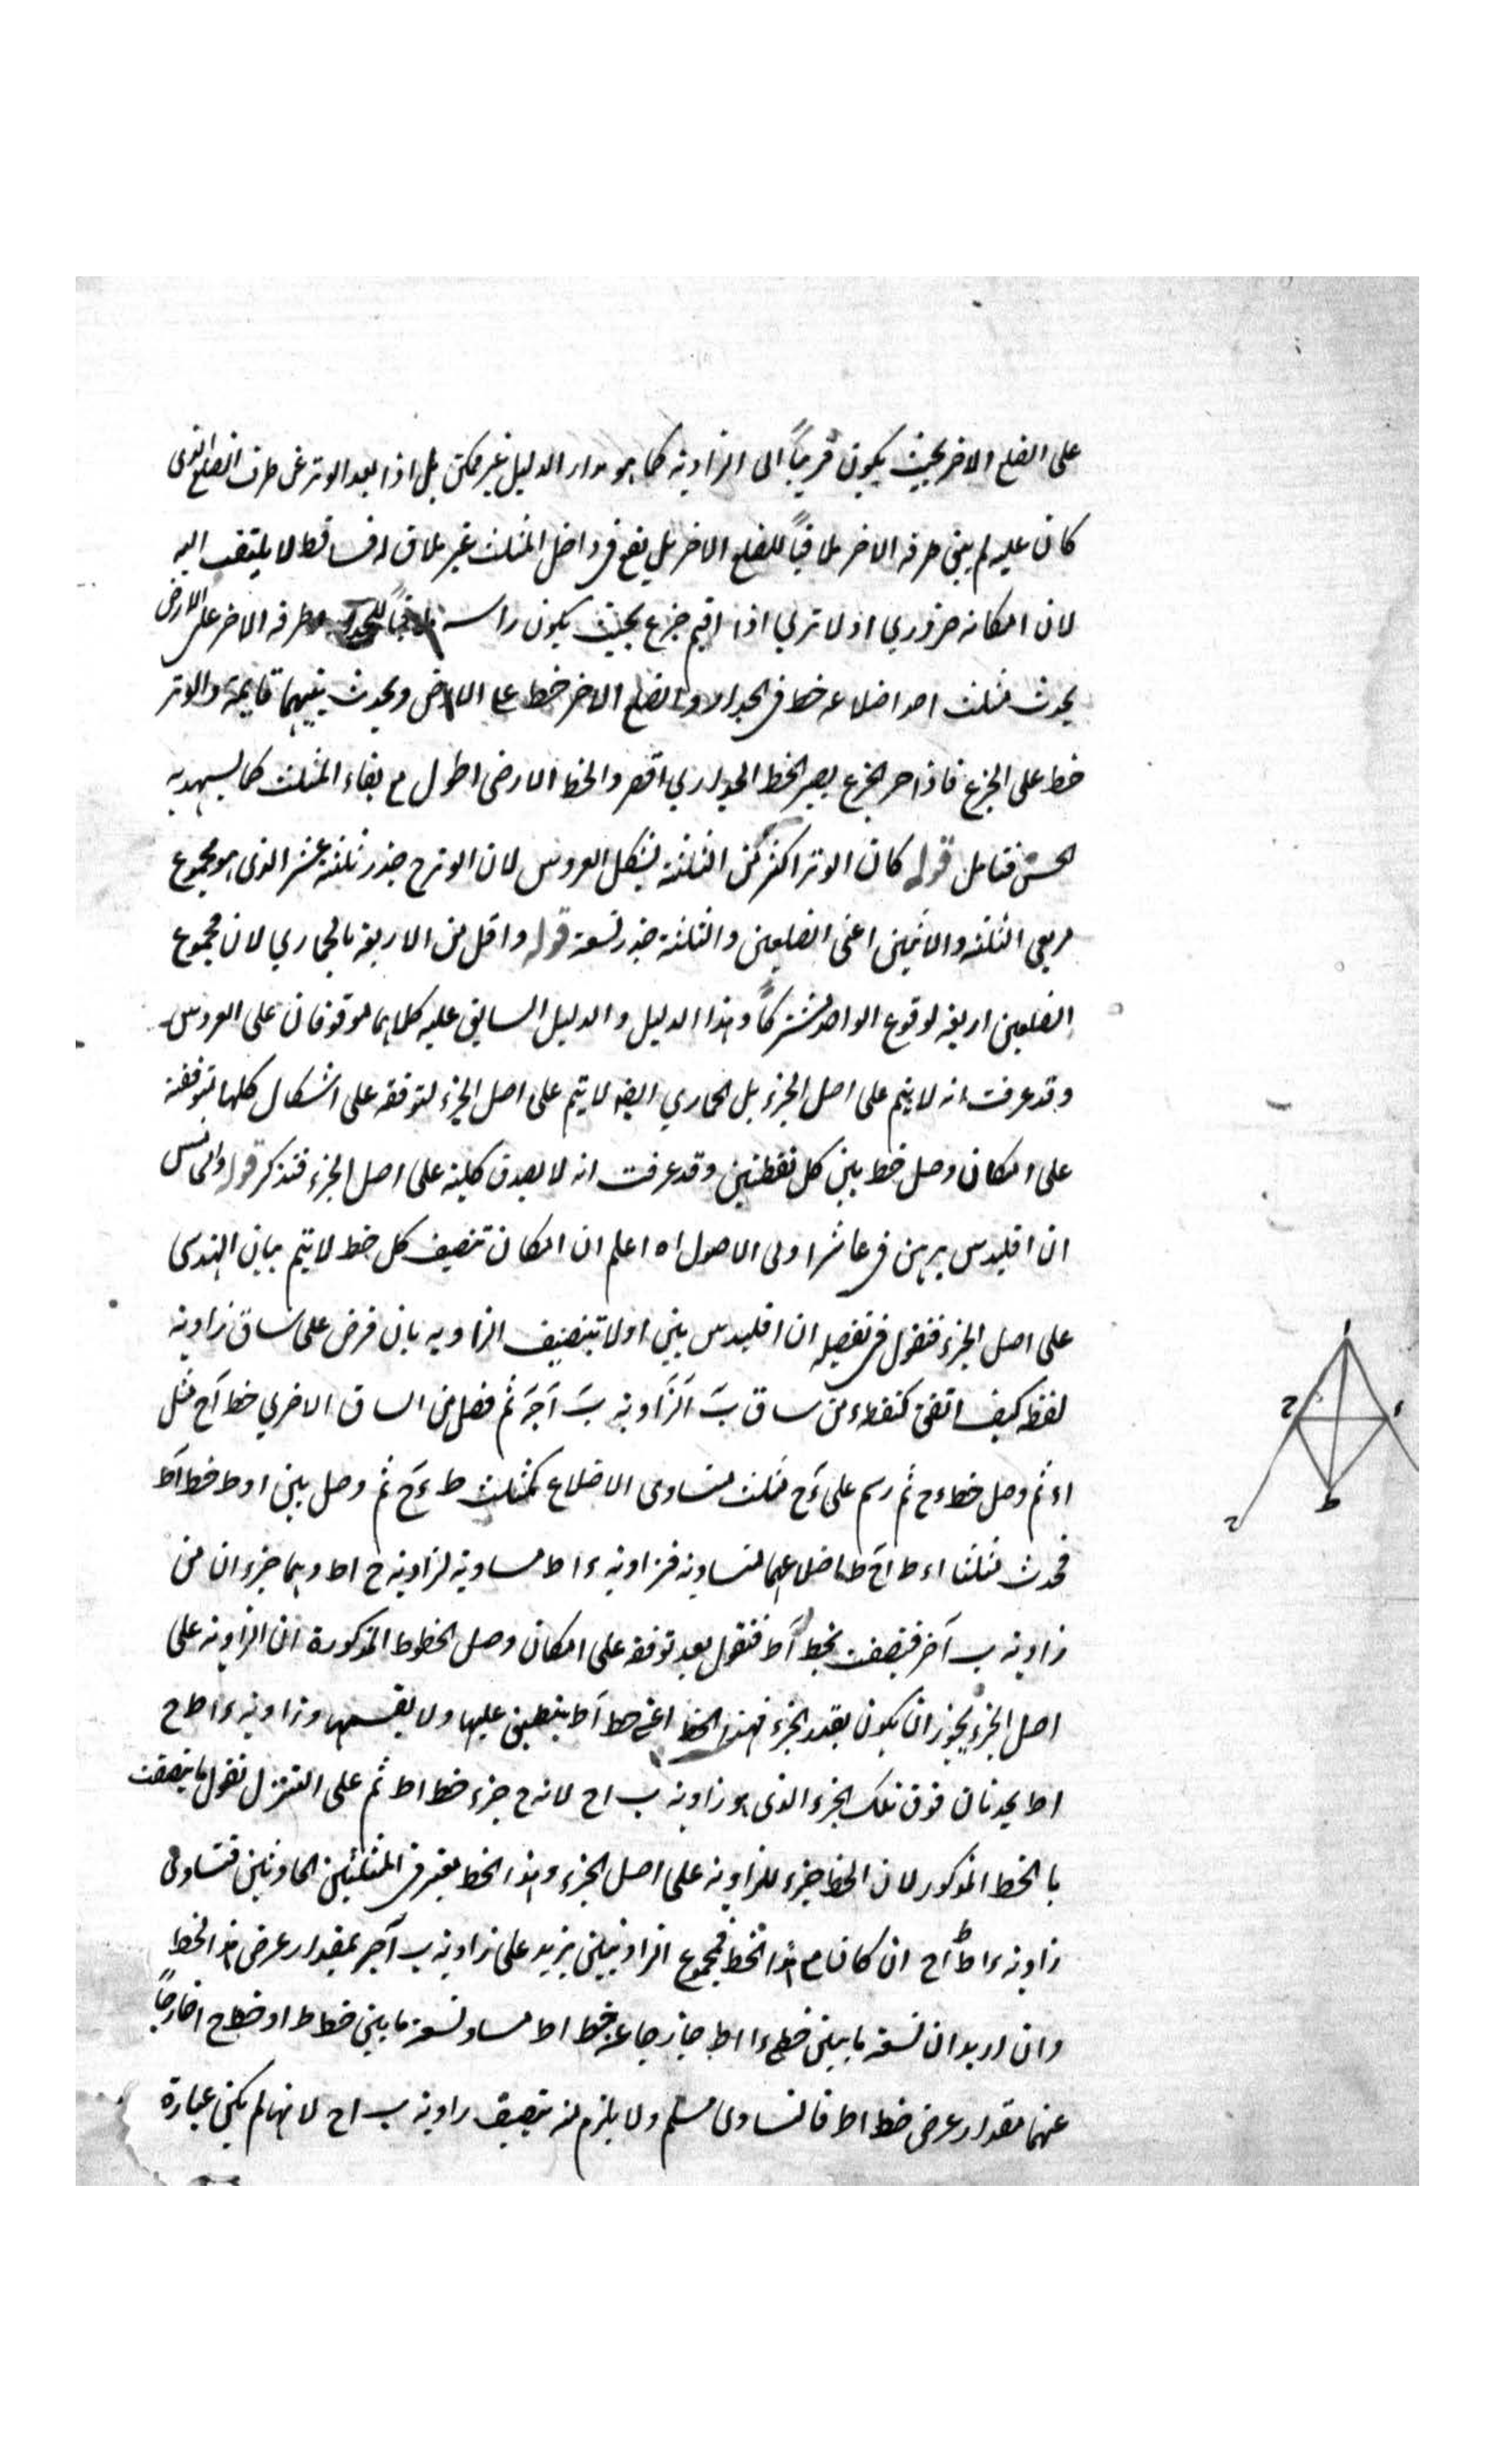 على الضلع الاخر بحيث يكون قريباً الى الزاوية كما هو مدار الدليل غير ممكن بل اذا بعد الوتر عن طرف الضلع الذى
كان عليه لم يبق طرفه الاخر ملاقياً للضلع الاخر بل يقع فى داخل المثلث غير ملاق له فساقط لا يلتفت اليه
لان امكانه ضروري اولا ترى اذا اقيم جزع بحيث يكون راسه ملاقياً للجدار وطرفه الاخر على الارض
يحدث مثلث احد اضلاعه خط فى الجدار والضلع الاخر خط على الارض ويحدث بينهما قايمة والوتر
خط على الجزع فاذا جر الجزع يصير الخط الجداري اقصر والخط الارضى اطول مع بقاء المثلث كما يشهد به
الحس فتامل قوله كان الوتر اكثر من الثلثة بشكل العروس لان الوتر ح جذر ثلثة عشر الذى هو مجموع
مربعى الثلثة والاثنين اعنى الضلعين والثلثة جذر تسعة قوله واقل من الاربعة بالحماري لان مجموع
الضلعين اربعة لوقوع الواحد مشتركاً وهذا الدليل والدليل السابق عليه كلاهما موقوفان على العروس
وقد عرفت انه لا يتم على اصل الجزء بل الحماري ايضا لا يتم على اصل الجزء لتوقفه على اشكال كلها متوقفة
على امكان وصل خط بين كل نقطتين وقد عرفت انه لا يصدق كلية على اصل الجزء فتذكر قوله والخامس
ان اقليدس برهن فى عاشر اولى الاصول اه اعلم ان امكان تنصيف كل خط لا يتم ببيان الهندسى
على اصل الجزء فنقول فى تفصيله ان اقليدس بين اولا تنصيف الزاويه بان فرض على ساق زاوية
نقطة كيف اتفق كنقطة ء من ساق ب الزاوية ب ا ج ثم فصل من الساق الاخرى خط اح مثل
اء ثم وصل خط ء ح ثم رسم على ء ح مثلث متساوى الاضلاع كمثلث ط ء ح ثم وصل بين ا و ط خط اط
فحدث مثلثا اء ط اح ط اضلاعهما متساوية فزاوية ء اط مساوية لزاوية ح اط وهما جزءان من
زاوية ب ا ج فتنصفت بخط اط فنقول بعد توقفه على امكان وصل الخطوط المذكورة ان الزاوية على
اصل الجزء يجوز ان يكون بقدر الجزء فهذا الخط اعنى خط اط ينطبق عليها ولا يقسمها وزاوية ء اط ح
اط يحدثان فوق تلك الجزء الذى هو زاوية ب اح لانه ح جزء خط اط ثم على التنزل نقول ما تنصفت
بالخط المذكور لان الخط جزء للزاوية على اصل الجزء وهذا الخط يعتبر فى المثلثين الحادثين فتساوى
زاوية ء اط اح ان كان مع هذا الخط فمجموع الزاويتين يزيد على زاوية ب ا ج بمقدار عرض هذا الخط
وان اريد ان لسعة ما بين خط ء ا اط خارجا عنه خط اط مساو لسعة ما بين خط اط او خط اح خارجاً
عنهما مقدار عرض خط اط فالتساوى مسلم ولا يلزم منه تنصيف زاوية ب اح لانها لم يكن عبارة
ا
ح
ء
ط